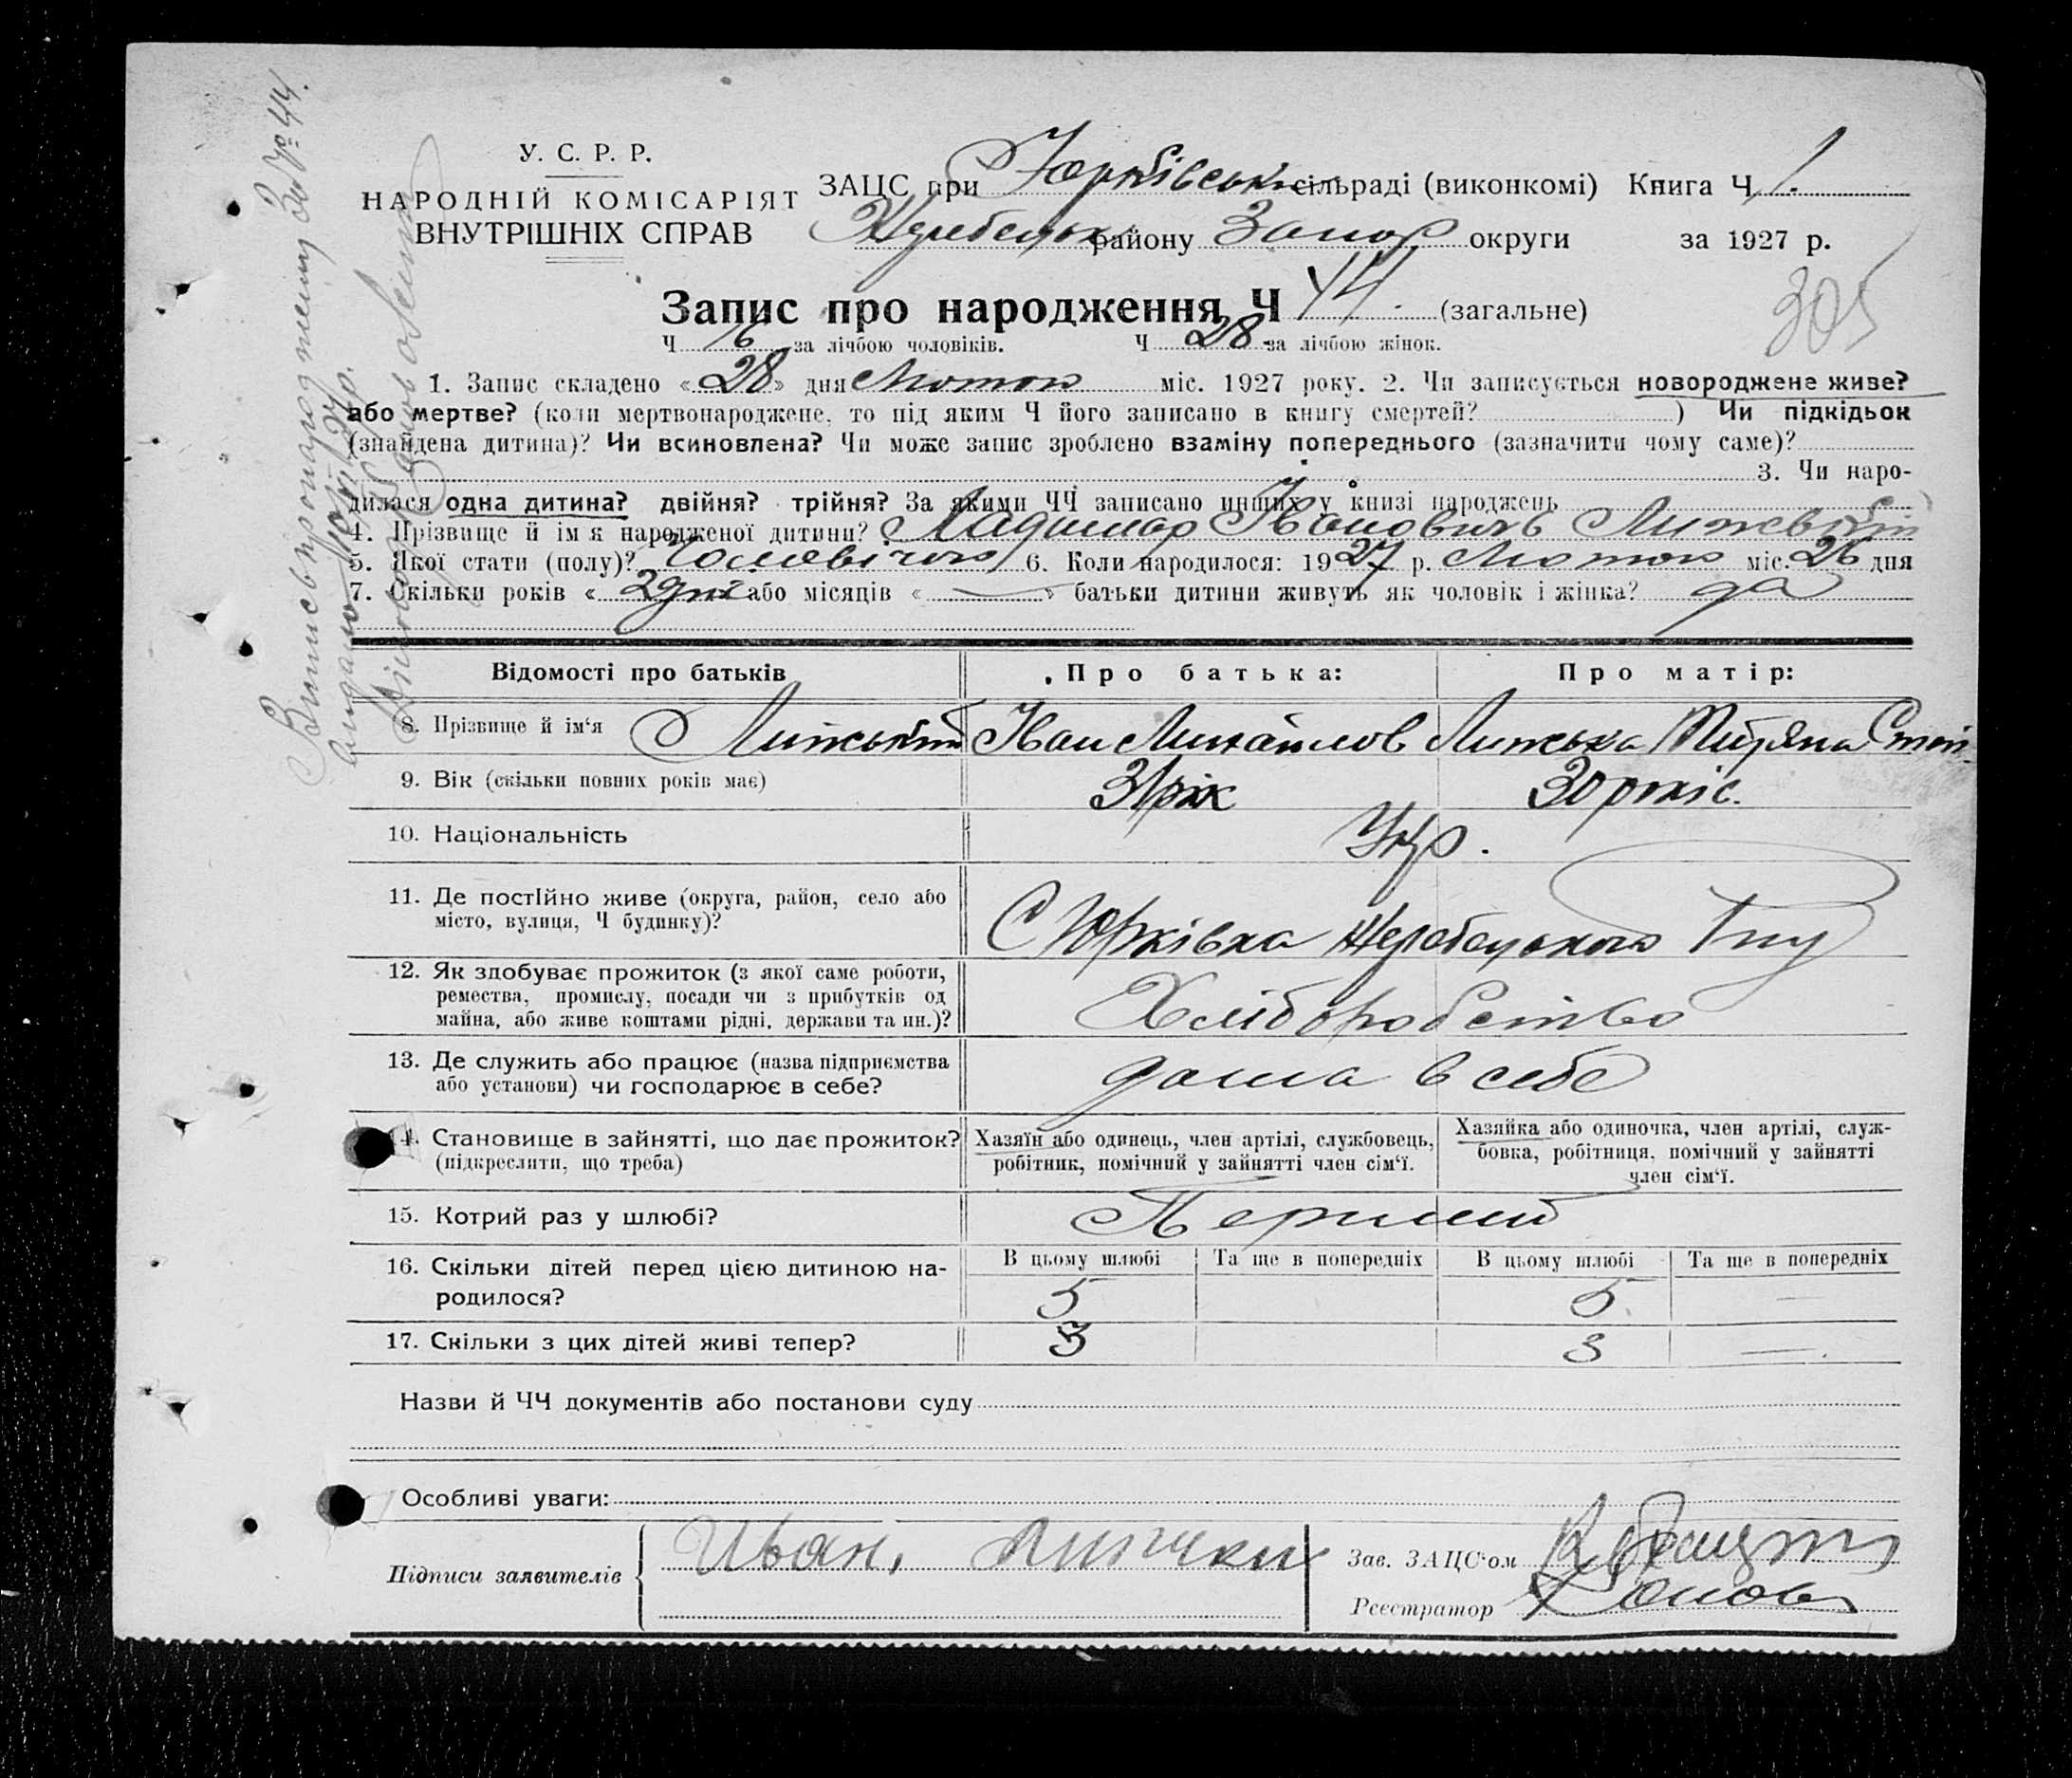 У. С. Р. Р.
НАРОДНІЙ КОМІСАРІЯТ
ВНУТРІШНІХ СПРАВ
ЗАЦС при Юрківській сільраді (виконкомі) Книга Ч 1.
району Запор округи за 1927 р.
305
Запис про народження Ч 44. (загальне)
Ч 16 за лічбою чоловіків. Ч 28 за лічбою жінок.
1. Запис складено «28» дня Лютого міс. 1927 року. 2. Чи записується новороджене живе?
або мертве? (коли мертвонароджене, то під яким Ч його записано в книгу смертей? ) Чи підкідьок
(знайдена дитина)? Чи всиновлена? Чи може запис зроблено взаміну попереднього (зазначити чому саме)?
3. Чи наро-
дилася одна дитина? двійня? трійня? За якими ЧЧ записано инших у книзі народжень
4. Прізвище й ім'я народженої дитини? Ладимар Іванович
5. Якої стати (полу)? 6. Коли народилося: 1927 р. Лютого міс. 26 дня
7. Скільки років « або місяців « — » батьки дитини живуть як чоловік і жінка? да
Відомості про батьків
Про батька:
Про матір:
8. Прізвище й ім'я Іван Михайлов
9. Вік (скільки повних років має) 31 рік 30 років.
10. Національність Укр.
11. Де постІйно живе (округа, район, село або
місто, вулиця, Ч будинку)?
С Юрківка Жеребецького Р-ну
12. Як здобуває прожиток (з якої саме роботи,
ремества, промислу, посади чи з прибутків од
майна, або живе коштами рідні, держави та ин.)?
Хліборобство
13. Де служить або працює (назва підприємства
або установи) чи господарює в себе?
дома в себе
14. Становище в зайнятті, що дає прожиток?
(підкреслити, що треба)
Хазяїн або одинець, член артілі, службовець,
робітник, помічний у зайнятті член сім'ї.
Хазяйка або одиночка, член артілі, служ-
бовка, робітниця, помічний у зайнятті
член сім'ї.
15. Котрий раз у шлюбі? Перший
16. Скільки дітей перед цією дитиною на-
родилося?
В цьому шлюбі Та ще в попередніх В цьому шлюбі Та ще в попередніх
5 5. —
17. Скільки з цих дітей живі тепер? 3 3 —.
Назви й ЧЧ документів або постанови суду
Особливі уваги:
Підписи заявителів
Иван,
Зав. ЗАЦС'ом
Реєстратор